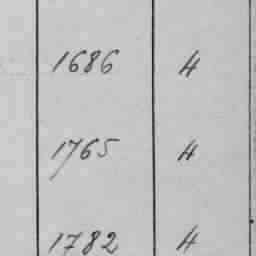 1686 4
1765 4
1782 4